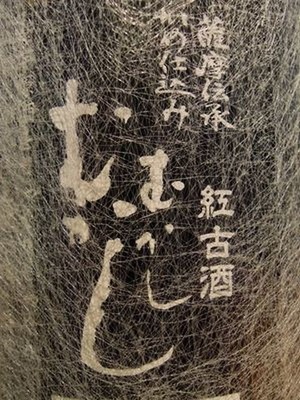 薩摩伝承
かめ仕込み
紅古酒
むかし
むかし